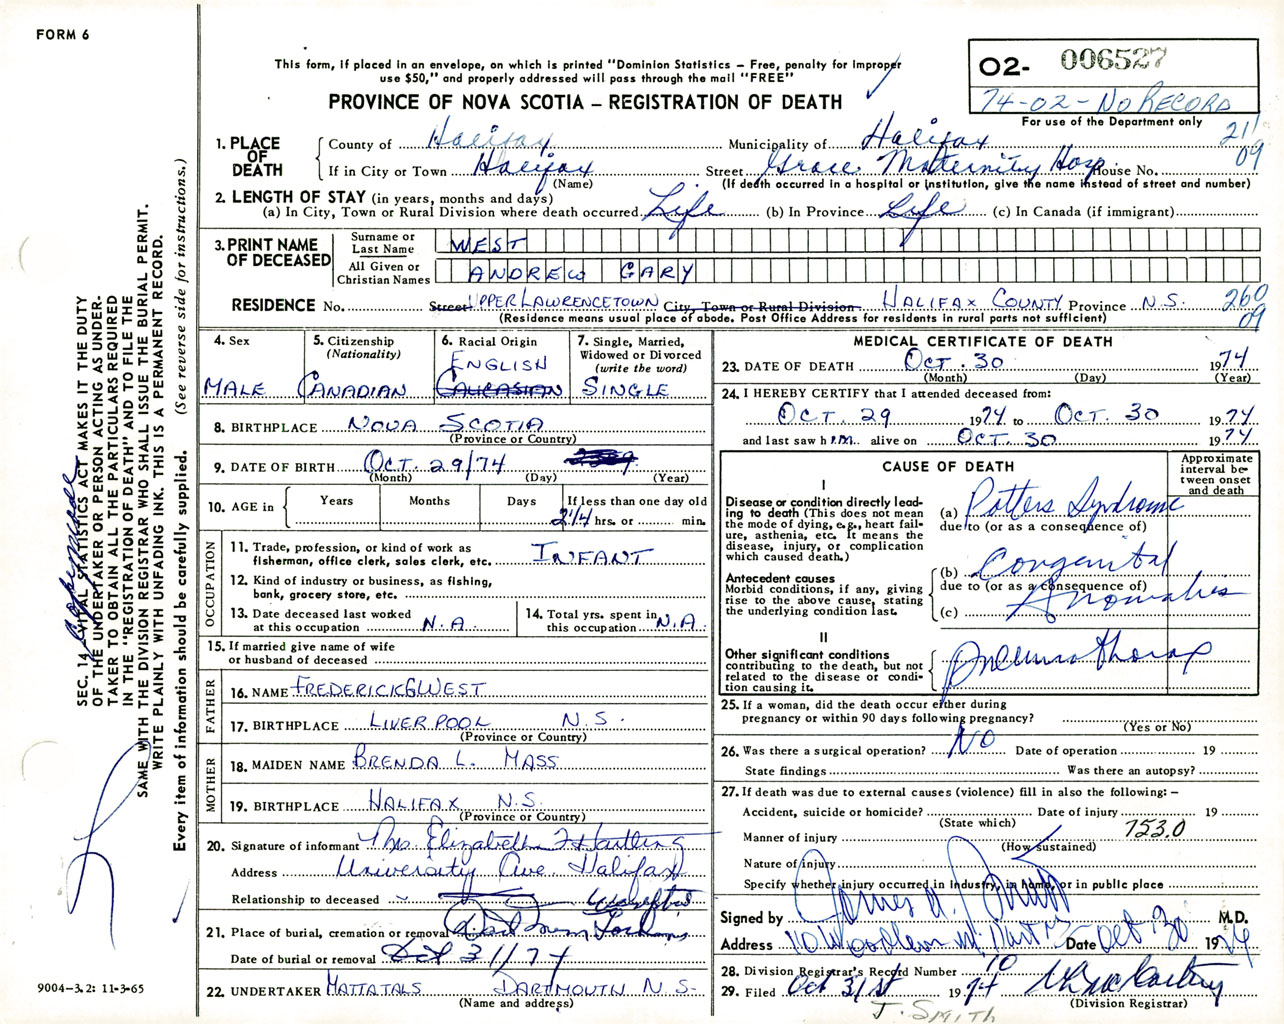 FORM 6
This form, if placed in an envelope, on which is printed "Dominion Statistics — Free, penalty for improper
use $50," and properly addressed will pass through the mail "FREE"
PROVINCE OF NOVA SCOTIA – REGISTRATION OF DEATH
02- 006527
74-02-NO RECORD
For use of the Department only
21
09
1. PLACE OF DEATH
County of Halifax Municipality of Halifax
If in City or Town Halifax Street Grace Maternity Hosp House No.
(Name) (If death occurred in a hospital or institution, give the name instead of street and number)
2. LENGTH OF STAY (in years, months and days)
(a) In City, Town or Rural Division where death occurred Life (b) In Province Life (c) In Canada (if immigrant)
3. PRINT NAME OF DECEASED
Surname or Last Name WEST
All Given or Christian Names ANDREW GARY
RESIDENCE No. Street UPPER LAWRENCETOWN City, Town or Rural Division HALIFAX COUNTY Province N.S. 260
09
(Residence means usual place of abode. Post Office Address for residents in rural parts not sufficient)
4. Sex
MALE
5. Citizenship
(Nationality)
CANADIAN
6. Racial Origin
ENGLISH
CAUCASIAN
7. Single, Married,
Widowed or Divorced
(write the word)
SINGLE
8. BIRTHPLACE NOVA SCOTIA
(Province or Country)
9. DATE OF BIRTH OCT. 29/74
(Month) (Day) (Year)
10. AGE in Years Months Days If less than one day old
hrs. or min.
OCCUPATION
11. Trade, profession, or kind of work as
fisherman, office clerk, sales clerk, etc. INFANT
12. Kind of industry or business, as fishing,
bank, grocery store, etc.
13. Date deceased last worked
at this occupation N.A
14. Total yrs. spent in
this occupation N.A.
15. If married give name of wife
or husband of deceased
FATHER
16. NAME FREDERICK G WEST
17. BIRTHPLACE LIVERPOOL N.S.
(Province or Country)
MOTHER
18. MAIDEN NAME BRENDA L. MASS
19. BIRTHPLACE HALIFAX N.S.
(Province or Country)
20. Signature of informant Mrs Elizabeth F Hartling
Address University Ave Halifax
Relationship to deceased
21. Place of burial, cremation or removal
Date of burial or removal Oct 31/74
22. UNDERTAKER MATTATALS DARTMOUTH N.S.
(Name and address)
MEDICAL CERTIFICATE OF DEATH
23. DATE OF DEATH OCT. 30 1974
(Month) (Day) (Year)
24. I HEREBY CERTIFY that I attended deceased from:
OCT. 29 1974 to OCT. 30 1974
and last saw h I.M. alive on OCT. 30 1974
CAUSE OF DEATH
Approximate interval between onset and death
I
Disease or condition directly leading to death (This does not mean the mode of dying, e.g., heart failure, asthenia, etc. It means the disease, injury, or complication which caused death.)
(a) Potters Syndrome
due to (or as a consequence of)
Antecedent causes
Morbid conditions, if any, giving rise to the above cause, stating the underlying condition last.
(b) Congenital
due to (or as a consequence of)
(c) Anomalies
II
Other significant conditions
contributing to the death, but not related to the disease or condition causing it.
Pneumothorax
25. If a woman, did the death occur either during
pregnancy or within 90 days following pregnancy?
(Yes or No)
26. Was there a surgical operation? NO Date of operation 19
State findings Was there an autopsy?
27. If death was due to external causes (violence) fill in also the following: –
Accident, suicide or homicide? Date of injury 19
(State which)
Manner of injury 753.0
(How sustained)
Nature of injury
Specify whether injury occurred in industry, in home, or in public place
Signed by James M.D.
Address 110 Woodlawn Date Oct 30 1974
28. Division Registrar's Record Number 10
29. Filed Oct 31st 1974
(Division Registrar)
J. SMITH
SEC. 14 – VITAL STATISTICS ACT MAKES IT THE DUTY
OF THE UNDERTAKER OR PERSON ACTING AS UNDER-
TAKER TO OBTAIN ALL THE PARTICULARS REQUIRED
IN THE "REGISTRATION OF DEATH" AND TO FILE THE
SAME WITH THE DIVISION REGISTRAR WHO SHALL ISSUE THE BURIAL PERMIT.
WRITE PLAINLY WITH UNFADING INK. THIS IS A PERMANENT RECORD.
Every item of information should be carefully supplied. (See reverse side for instructions.)
9004–3.2: 11-3-65